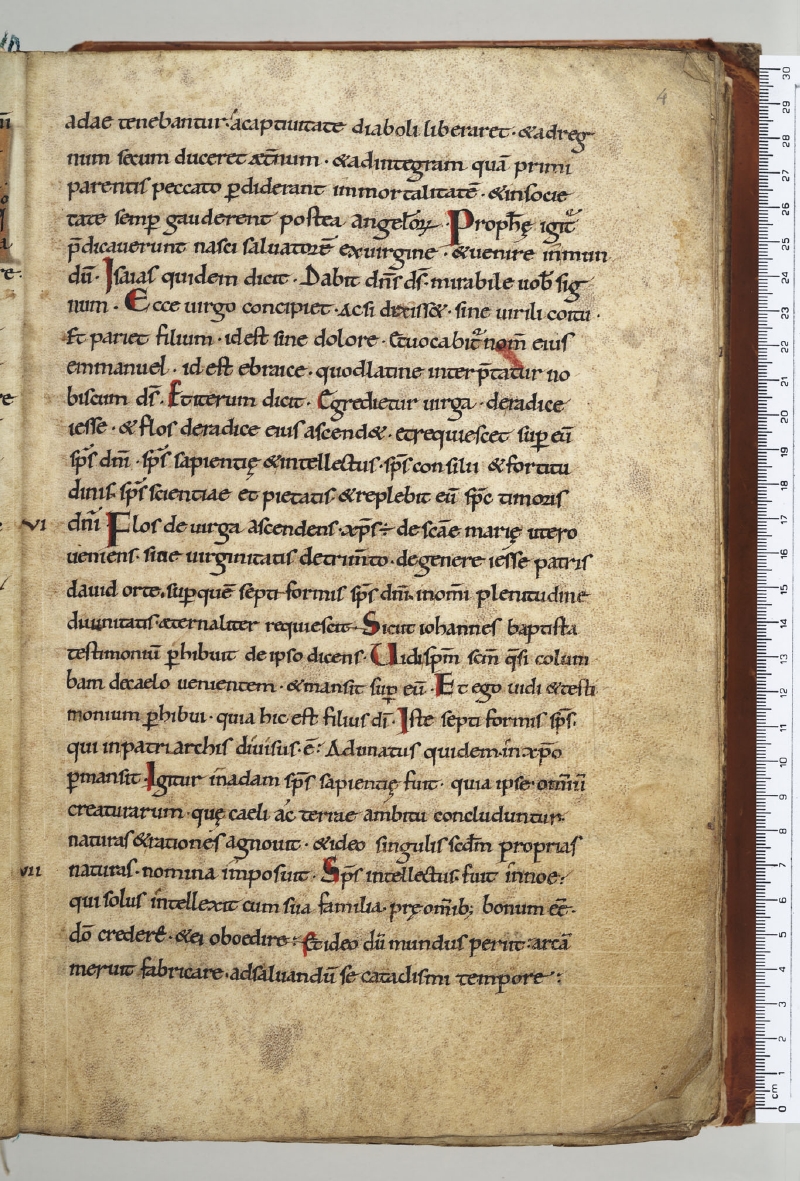 4
adae tenebantur· a captiuitate diaboli liberaret· & ad reg
num secum duceret aet̄num· & ad integram quā primi
parentis peccato ꝑdiderant immortalitatē· & in socie
tate semꝑ gauderent postea angeloꝝ· Prophę igit᷑
p̄dicauerunt nasci saluatorē ex uirgine· & uenire in mun
dū· Isaias quidem dicit· Dabit dn̄s ds̄ mirabile uob̄ sig
num· Ecce uirgo concipiet· ac si dixiss&· sine uirili coitu·
Et pariet filium· id est sine dolore· Et uocabit᷑ nom̄ eius
emmanuel· id est ebraice· quod latine interp̄tatur no
biscum ds̄· Et iterum dicit· Egredietur uirga· de radice
iesse· & flos de radice eius ascend&· et requiescet suꝑ eū
sp̄s dn̄i· sp̄s sapientię & intellectus· sp̄s consilii & fortitu
dinis· sp̄s scientiae et pietatis· & replebit eū sp̄c timoris
VI dn̄i Flos de uirga ascendens· xp̄s ÷ de sc̄ae marię utero
ueniens· sine uirginitatis detrim̄to· de genere iesse patris
dauid orte· suꝑ quē septiformis sp̄s dn̄i· in om̄i plenitudine
diuinitatis aeternaliter requiescit· Sicut iohannes baptista
testimoniū ꝑhibuit de ipso dicens· Uidi sp̄m sc̄m q̄si colum
bam de caelo uenientem· & mansit suꝑ eū· Et ego uidi & testi
monium ꝑhibui· quia hic est filius dī· Iste septiformis sp̄s·
qui in patriarchis diuisus· ē· Adunatus quidem· in xp̄o
ꝑmansit· Igitur in adam sp̄s sapientię fuit· quia ipse omniū
creaturarum· quę caeli ac terrae ambitu concluduntur·
naturas & rationes agnouit· & ideo singulis sc̄dm proprias
VII naturas· nomina imposuit· Sp̄s intellectus· fuit in noe·
qui solus intellexit cum sua familia· prę omib; bonum eē·
dō credere· & ei oboedire· Et ideo dū mundus periit· arcā
meruit fabricare· ad saluandū se cataclismi tempore·